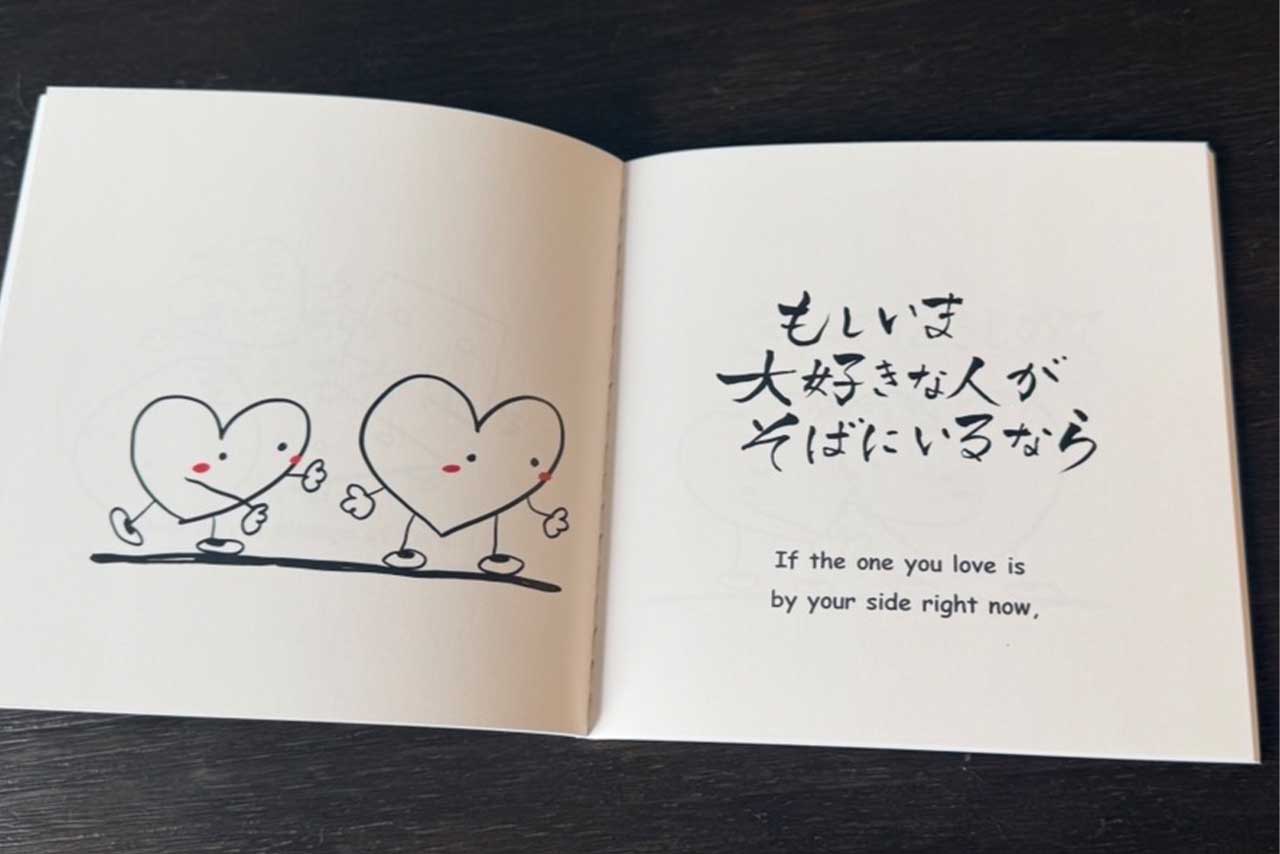 もしいま
大好きな人が
そばにいるなら
If the one you love is
by your side right now,